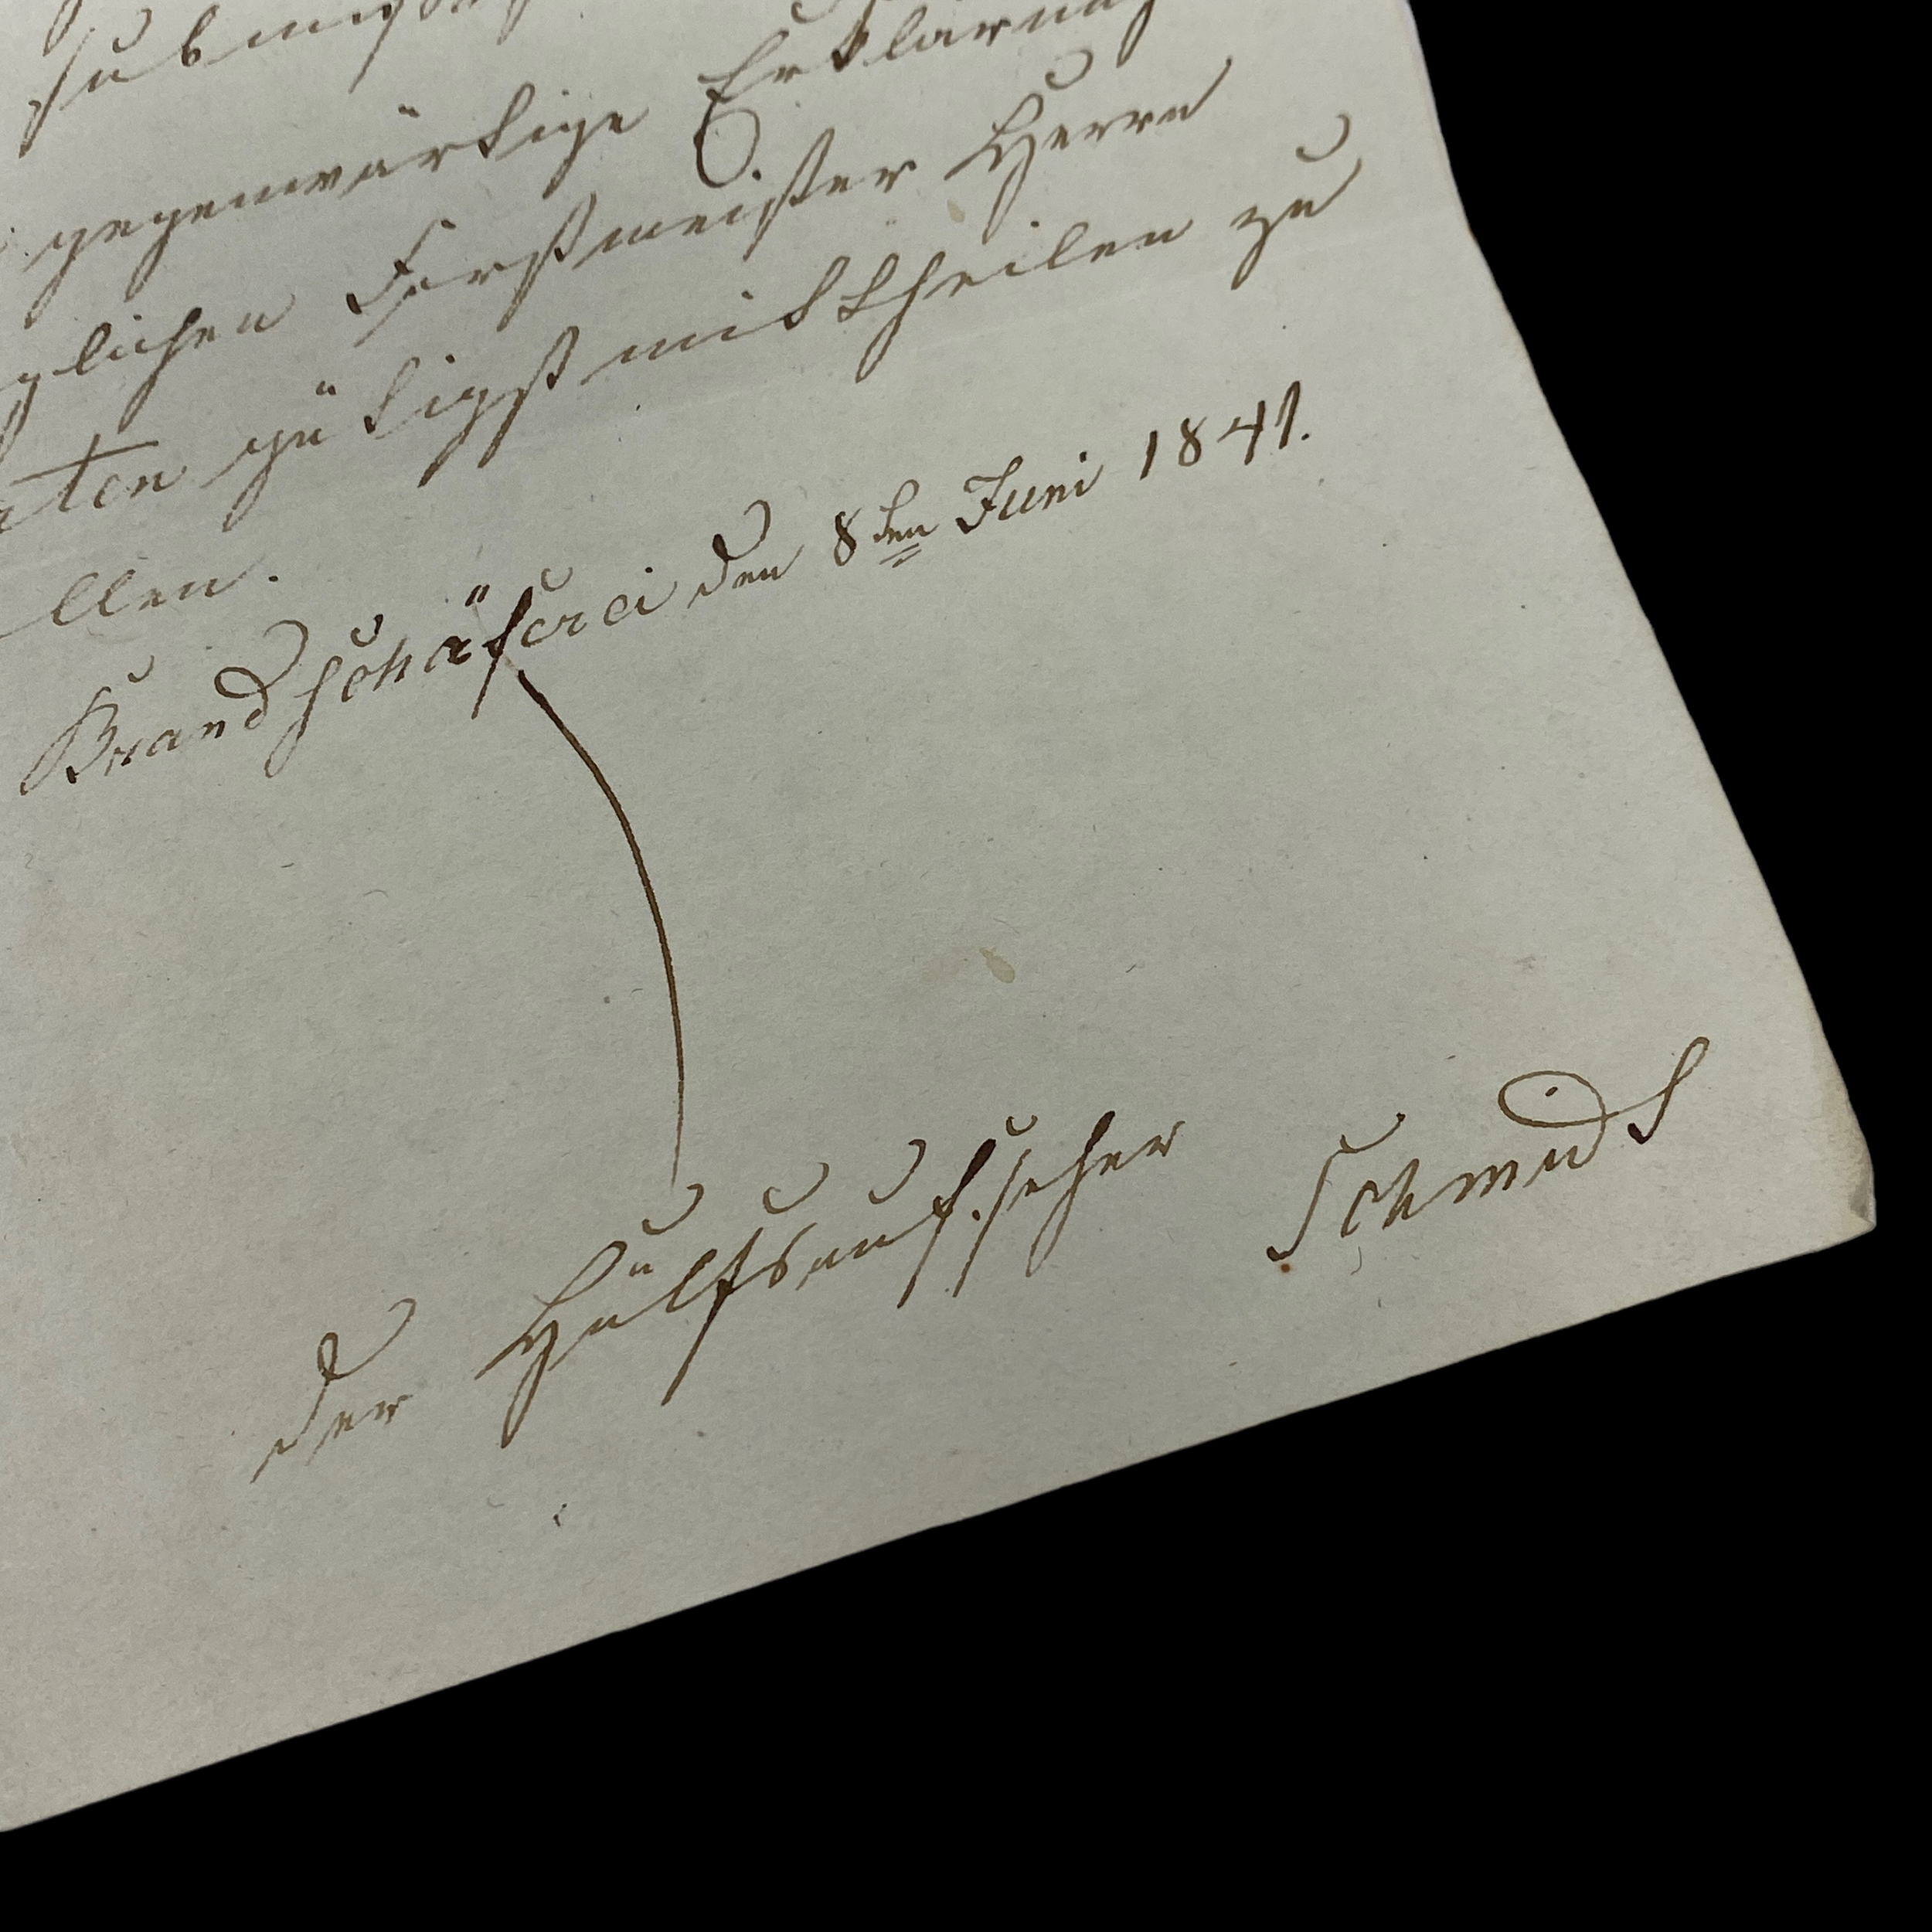 gegenwärtige Erklärung
glichen Forstmeister Herrn
ten gütigst mittheilen zu
llen.
Brandschäferei den 8ten Juni 1841.
der Hülfsaufseher Schmidt